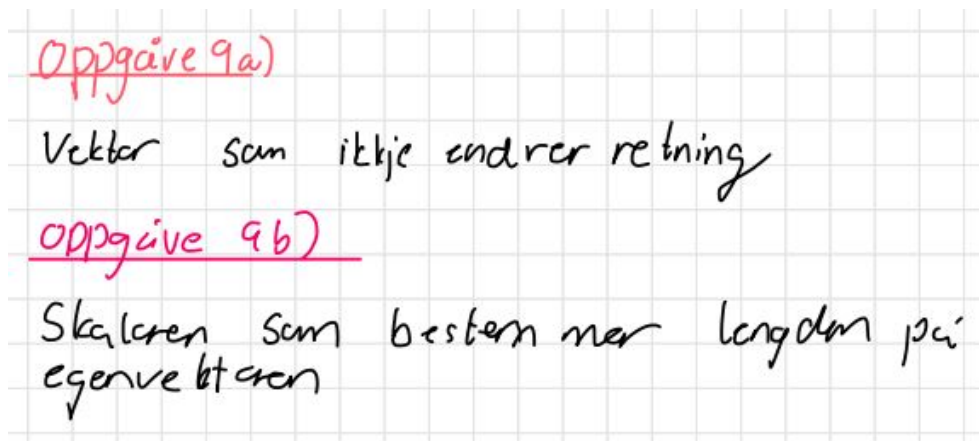 Oppgåve 9a)
Vektor som ikkje endrer retning
oppgåve 9b)
Skalaren som bestemmer lengden på
egenvektoren